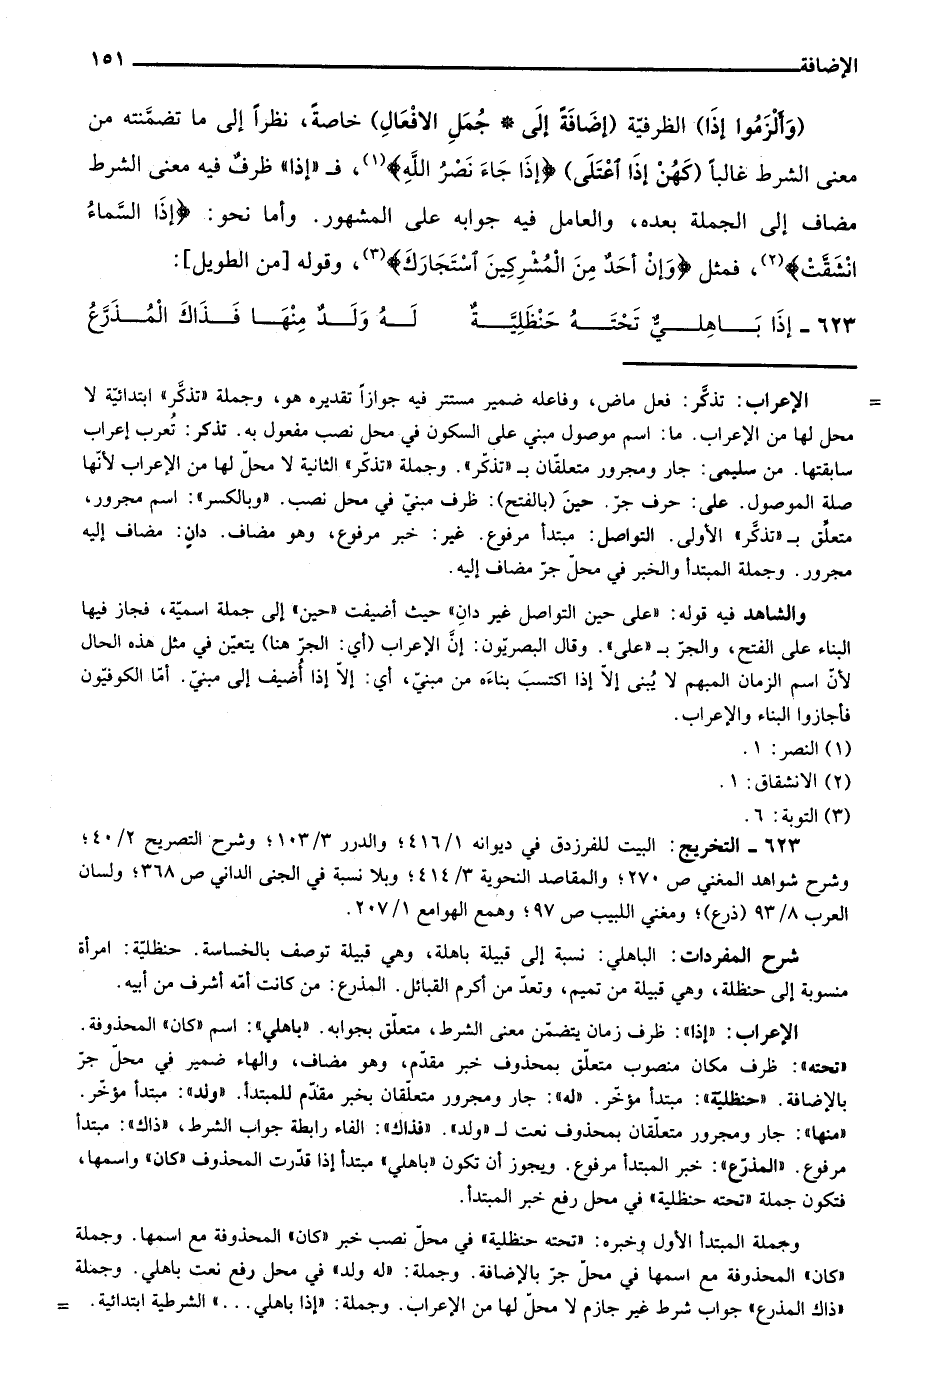 الإضافة ١٥١
(وَأَلْزَمُوا إذَا) الظرفيّة (إضَافَةً إلَى * جُمَلِ الافْعَالِ) خاصةً، نظراً إلى ما تضمَّنته من
معنى الشرط غالباً (كَهُنْ إذَا اَعْتَلَى) ﴿إذَا جَاءَ نَصْرُ اللَّهِ﴾(١)، فـ «إذا» ظرفٌ فيه معنى الشرط
مضاف إلى الجملة بعده، والعامل فيه جوابه على المشهور. وأما نحو: ﴿إذَا السَّماءُ
انْشَقَّتْ﴾(٢)، فمثل ﴿وَإنْ أحَدٌ مِنَ الْمُشْرِكِينَ اَسْتَجَارَكَ﴾(٣)، وقوله [من الطويل]:
٦٢٣ ـ إذَا بَـاهِلـيٌّ تَحْتَـهُ حَنْظَلِيَّـةٌ لَـهُ وَلَـدٌ مِنْهَـا فَـذَاكَ الْمُـذَرَّعُ
= الإعراب: تذكَّر: فعل ماض، وفاعله ضمير مستتر فيه جوازاً تقديره هو، وجملة «تذكَّر» ابتدائيّة لا
محل لها من الإعراب. ما: اسم موصول مبني على السكون في محل نصب مفعول به. تذكر: تُعرب إعراب
سابقتها. من سليمى: جار ومجرور متعلّقان بـ «تذكّر». وجملة «تذكّر» الثانية لا محلّ لها من الإعراب لأنّها
صلة الموصول. على: حرف جرّ. حينَ (بالفتح): ظرف مبنيّ في محل نصب. «وبالكسر»: اسم مجرور،
متعلّق بـ «تذكَّر» الأولى. التواصل: مبتدأ مرفوع. غير: خبر مرفوع، وهو مضاف. دانٍ: مضاف إليه
مجرور. وجملة المبتدأ والخبر في محلّ جرّ مضاف إليه.
والشاهد فيه قوله: «على حين التواصل غير دانِ» حيث أضيفت «حين» إلى جملة اسميّة، فجاز فيها
البناء على الفتح، والجرّ بـ «على». وقال البصريّون: إنَّ الإعراب (أي: الجرّ هنا) يتعيّن في مثل هذه الحال
لأنّ اسم الزمان المبهم لا يُبنى إلاّ إذا اكتسبَ بناءَه من مبنيّ، أي: إلاّ إذا أُضيف إلى مبنيّ. أمّا الكوفيّون
فأجازوا البناء والإعراب.
(١) النصر: ١.
(٢) الانشقاق: ١.
(٣) التوبة: ٦.
٦٢٣ ـ التخريج: البيت للفرزدق في ديوانه ٤١٦/١؛ والدرر ١٠٣/٣؛ وشرح التصريح ٤٠/٢؛
وشرح شواهد المغني ص ٢٧٠؛ والمقاصد النحوية ٤١٤/٣؛ وبلا نسبة في الجنى الداني ص ٣٦٨؛ ولسان
العرب ٩٣/٨ (ذرع)؛ ومغني اللبيب ص ٩٧؛ وهمع الهوامع ٢٠٧/١.
شرح المفردات: الباهلي: نسبة إلى قبيلة باهلة، وهي قبيلة توصف بالخساسة. حنظليّة: امرأة
منسوبة إلى حنظلة، وهي قبيلة من تميم، وتعدّ من أكرم القبائل. المذرع: من كانت أمّه أشرف من أبيه.
الإعراب: «إذا»: ظرف زمان يتضمّن معنى الشرط، متعلّق بجوابه. «باهلي»: اسم «كان» المحذوفة.
«تحته»: ظرف مكان منصوب متعلّق بمحذوف خبر مقدّم، وهو مضاف، والهاء ضمير في محلّ جرّ
بالإضافة. «حنظلية»: مبتدأ مؤخّر. «له»: جار ومجرور متعلّقان بخبر مقدّم للمبتدأ. «ولد»: مبتدأ مؤخّر.
«منها»: جار ومجرور متعلّقان بمحذوف نعت لـ «ولد». «فذاك»: الفاء رابطة جواب الشرط، «ذاك»: مبتدأ
مرفوع. «المذرّع»: خبر المبتدأ مرفوع. ويجوز أن تكون «باهلي» مبتدأ إذا قدّرت المحذوف «كان» واسمها،
فتكون جملة «تحته حنظلية» في محل رفع خبر المبتدأ.
وجملة المبتدأ الأول وخبره: «تحته حنظلية» في محلّ نصب خبر «كان» المحذوفة مع اسمها. وجملة
«كان» المحذوفة مع اسمها في محلّ جرّ بالإضافة. وجملة: «له ولد» في محل رفع نعت باهلي. وجملة
«ذاك المذرع» جواب شرط غير جازم لا محلّ لها من الإعراب. وجملة: «إذا باهلي...» الشرطية ابتدائية. =